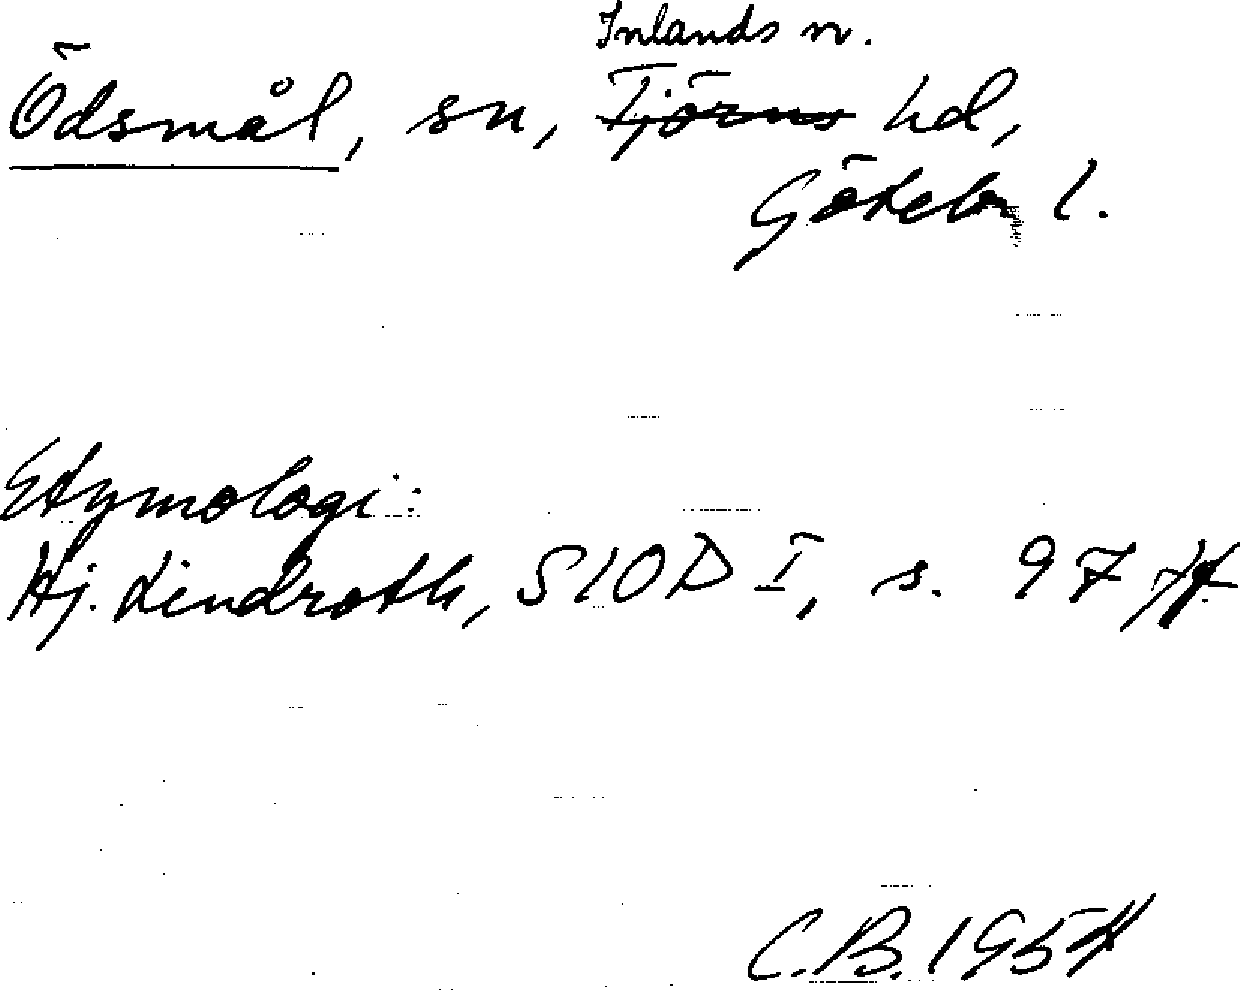 Inlands n.
Ödsmål, sn, Tjörns hd,
Götebg l.
Etymologi:
Hj. Lindroth, SIOD I, s. 97 ff
C.B. 1954